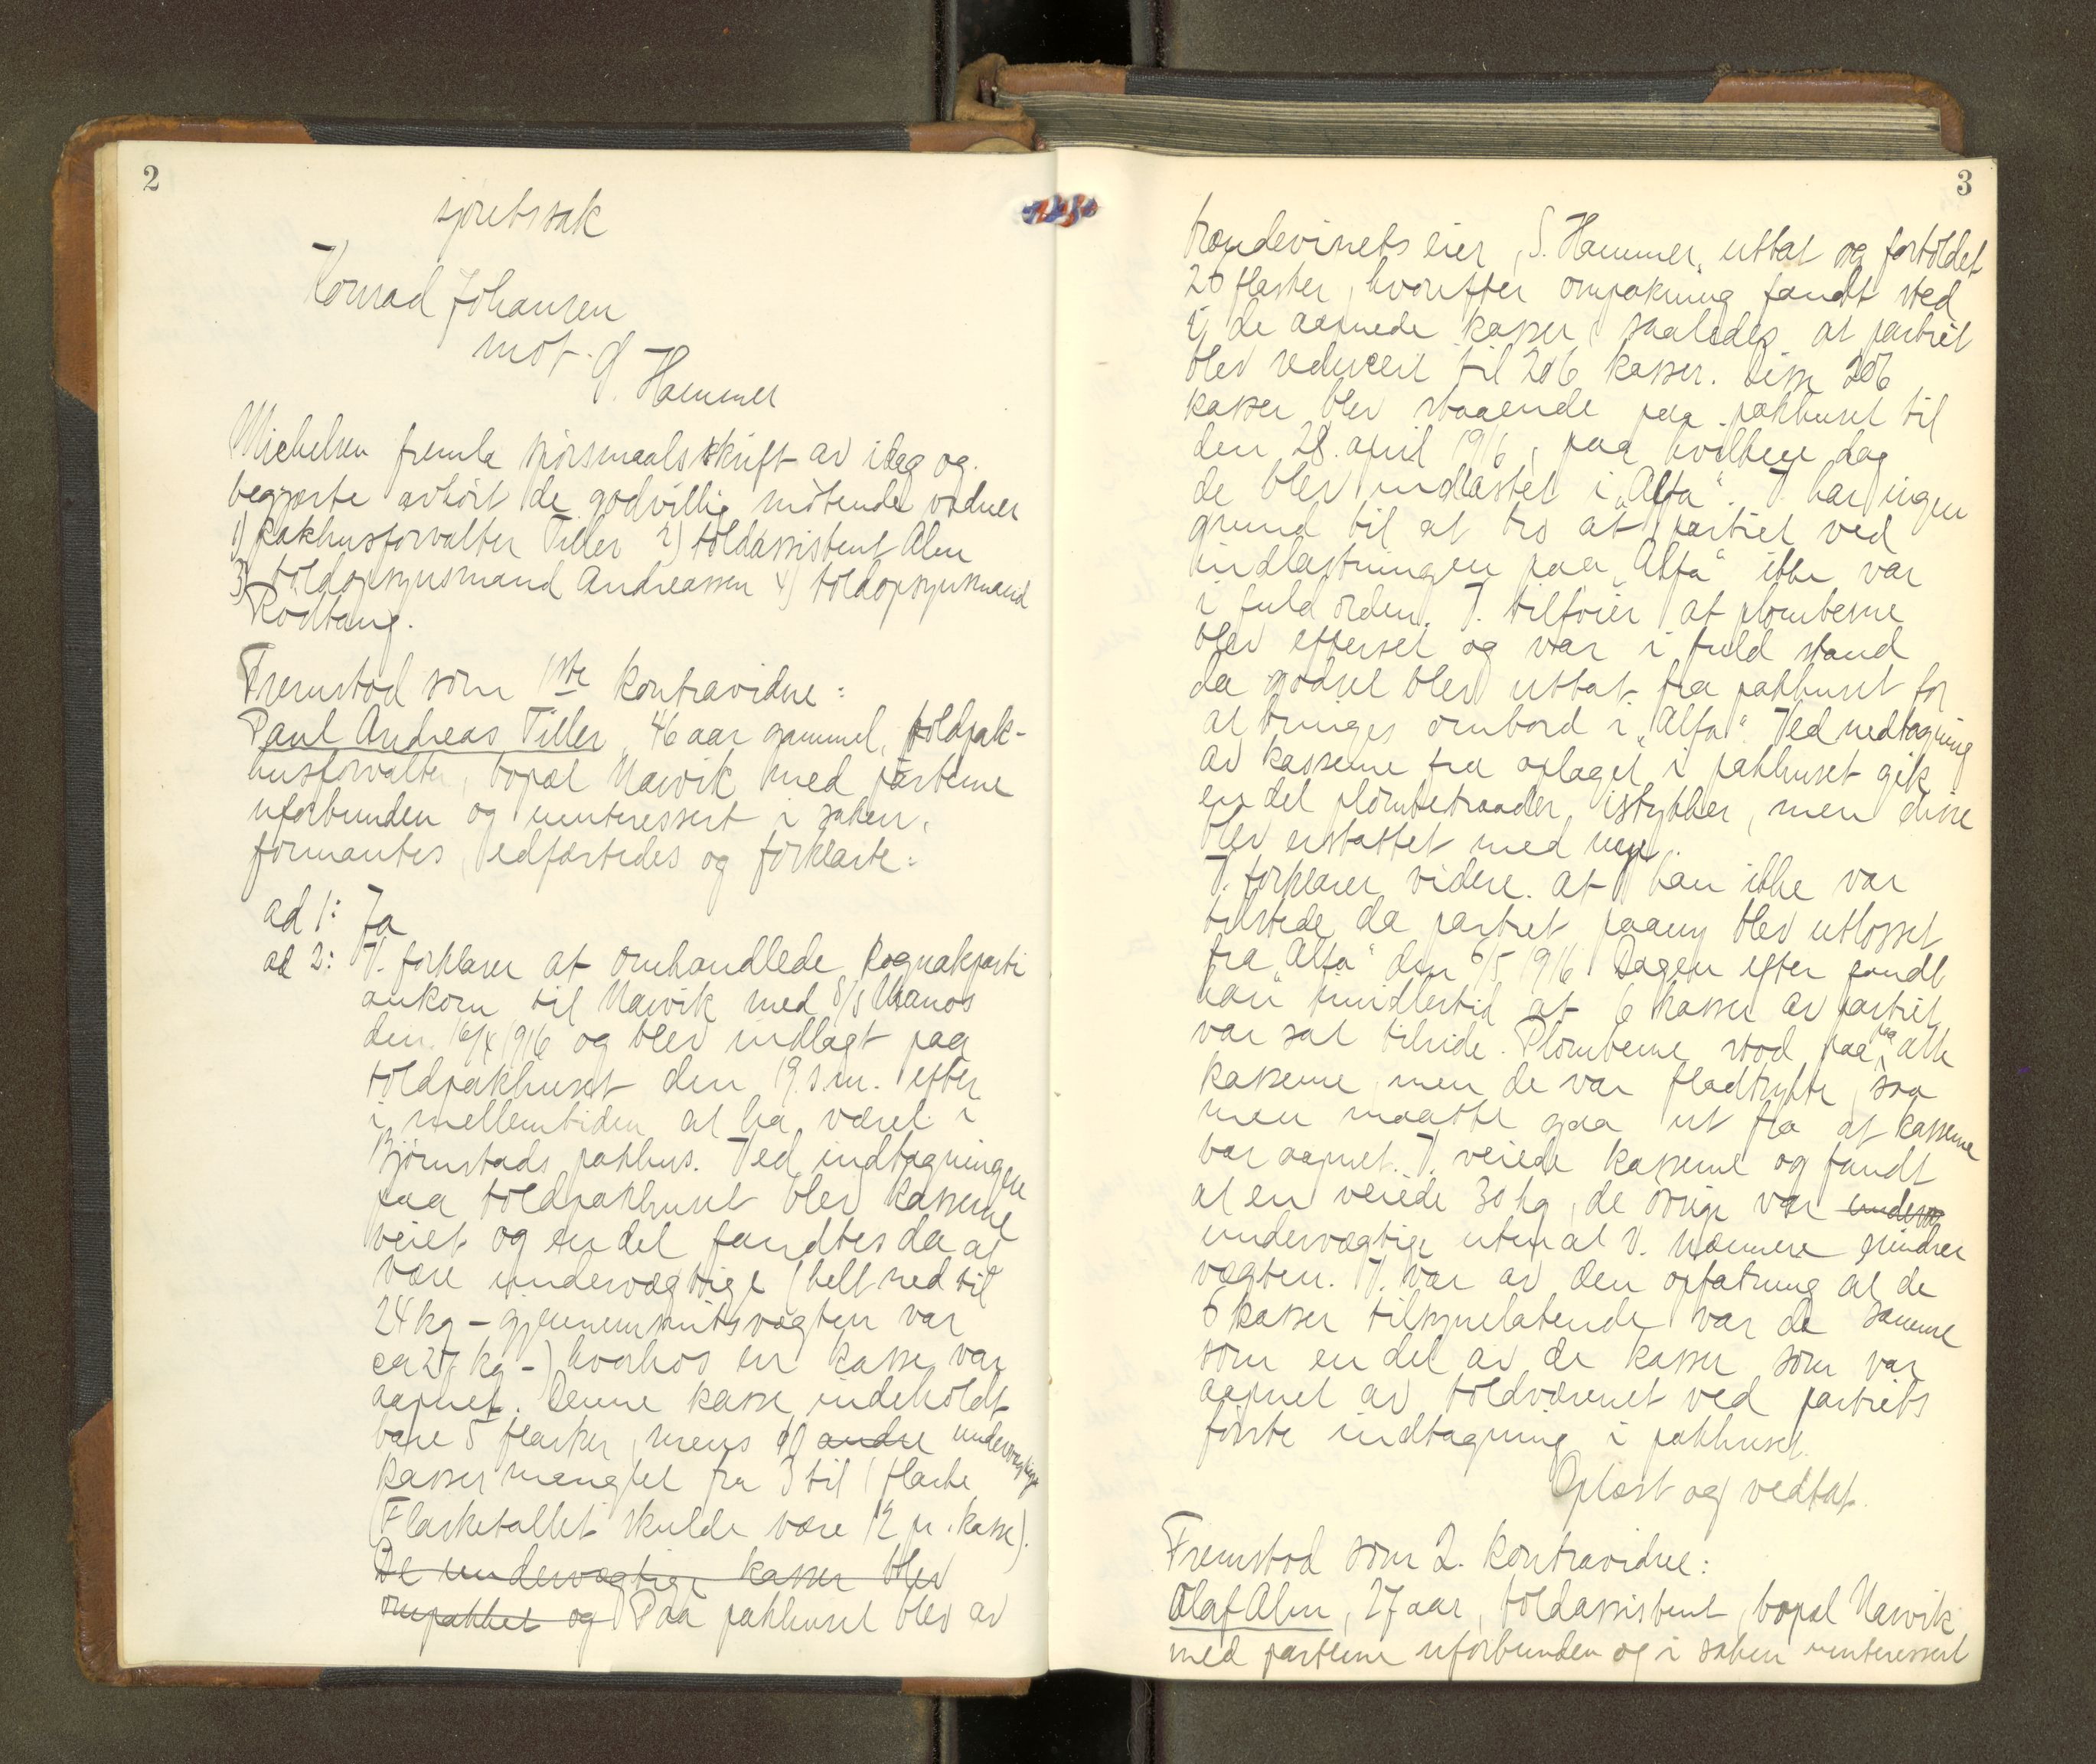 2
sjøretssak
Konrad Johansen
mot
S. Hammer
Michelsen fremla spörsmaalsskrift av idag og
begjærte avhört de godvillig mötende vidner
1) Pakhusforvalter Tiller 2) toldassistent Alm
3) toldopsynsmand Andreassen 4) toldopsynsmand
Rödtang.
Fremstod som 1ste kontravidne:
Paul Andreas Tiller, 46 aar gammel, toldpak-
husforvalter, bopæl Narvik med parterne
uforbunden og uinteressert i saken,
formantes, edfæstedes og forklarte:
ad 1: Ja
ad 2: V. forklarer at omhandlede kognakparti
ankom til Narvik med S/S Uranos
den 16/4 1916 og blev indlagt paa
toldpakhuset den 19. s.m. efter
i mellemtiden at ha været i
Bjørnstads pakhus. Ved indtagningen
paa toldpakhuset blev kasserne
veiet og en del fandtes da at
være undervægtige (helt ned til
24 kg – gjennemsnitsvægten var
ca 27 kg –) hvorhos en kasse var
aapnet. Denne kasse indeholdt
bare 5 flasker, mens 10 andre undervægtige
kasser manglet fra 3 til 1 flaske
(Flasketallet skulde være 12 pr. kasse).
De undervægtige kasser blev
ompakket og Paa pakhuset blev av
3
brændevinets eier, S. Hammer, uttat og fortoldet
20 flasker, hvorefter ompakning fandt sted
i de aapnede kasser saaledes at partiet
blev reducert til 206 kasser. Disse 206
kasser blev staaende paa pakhuset til
den 28. april 1916, paa hvilken dag
de blev indlastet i „Alfa“. V. har ingen
grund til at tro at partiet ved
indlastningen paa „Alfa“ ikke var
i fuld orden. V. tilföier at plomberne
blev efterset og var i fuld stand
da godset blev uttat fra pakhuset for
at bringes ombord i „Alfa“. Ved nedtagning
av kasserne fra oplaget i pakhuset gik
en del plombetraader istykker, men disse
blev erstattet med nye.
V. forklarer videre at han ikke var
tilstede da partiet paany blev utlosset
fra „Alfa“ den 6/5 1916. Dagen efter fandt
han imidlertid at 6 kasser av partiet
var sat tilside. Plomberne stod paa paa alle
kasserne, men de var fladtrykte, saa
men maatte gaa ut fra at kasserne
var aapnet. V. veiede kasserne og fandt
at en veiede 30 kg, de övrige var underv
undervægtige uten at V. nærmere erindrer
vægten. V. var av den opfatning at de
6 kasser tilsynelatende var de samme
som en del av de kasser som var
aapnet av toldvæsenet ved partiets
förste indtagning i pakhuset.
Oplæst og vedtat.
Fremstod som 2. kontravidne:
Olaf Alm, 27 aar, toldassistent, bopæl Narvik
med parterne uforbunden og i saken uinteressert